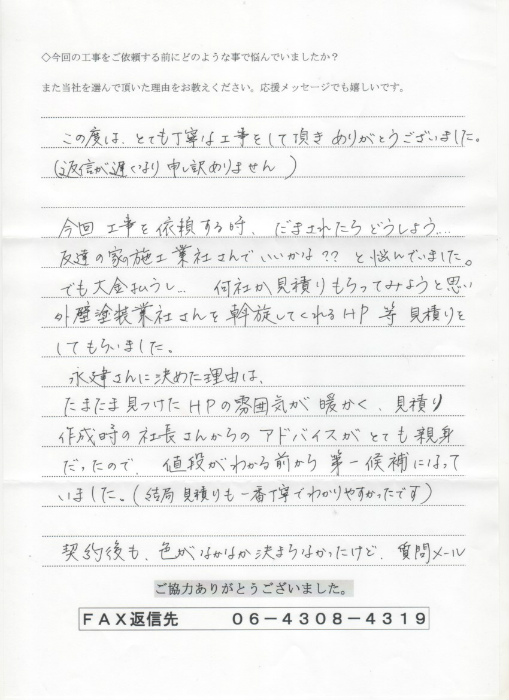 ◇今回の工事をご依頼する前にどのような事で悩んでいましたか？
また当社を選んで頂いた理由をお教えください。応援メッセージでも嬉しいです。
この度は、とても丁寧な工事をして頂きありがとうございました。
(返信が遅くなり申し訳ありません)
今回工事を依頼する時、だまされたらどうしよう…
友達の家の施工業社さんでいいかな？？と悩んでいました。
でも大金払うし… 何社か見積りもらってみようと思い
外壁塗装業社さんを斡旋してくれるHP等見積りを
してもらいました。
永建さんに決めた理由は、
たまたま見つけたHPの雰囲気が暖かく、見積り
作成時の社長さんからのアドバイスがとても親身
だったので、値段がわかる前から第一候補になって
いました。(結局見積りも一番丁寧でわかりやすかったです)
契約後も、色がなかなか決まらなかったけど、質問メール
ご協力ありがとうございました。
ＦＡＸ返信先　０６－４３０８－４３１９